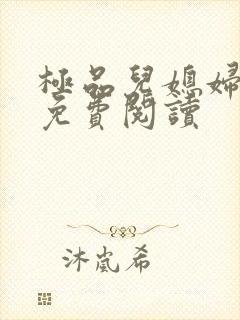 極品兒媳婦
免費閱讀
沐嵐希